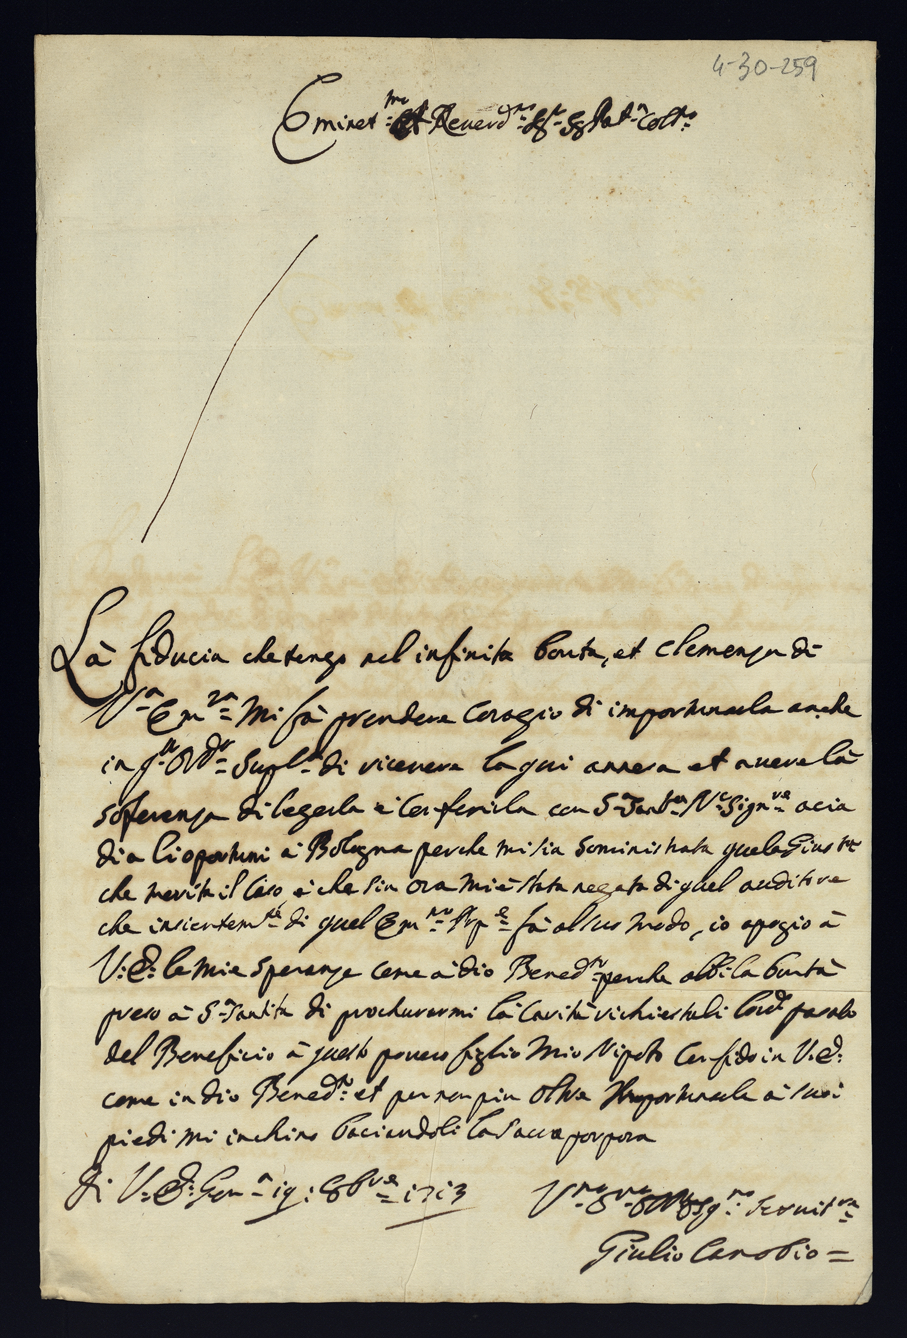 4-30-259
Eminet.mo et Reuerd.mo Sg.r Sg Pat.n Col.mo
Là fiducia che tengo nel infinita bonta, et Clemenza di
V.a Em.za Mi fà prendere Coragio di importunarla anche
in q.ta Supl.a di riceuere la qui annera et auere là
soferenza di legerla è Conferirla con S. Sant.a N.o Sign.re acia
dia li oportuni à Bologna perche mi sia Somministrata quela Giustia
che merita il Caso è che sin ora mi è stata negata di quel auditore
che insientem.te di quel Em.mo fà al suo modo, io apogio à
V: E: le mie Speranze come à dio Bened.to perche abbi la bontà
preso à S. Santita di prochurarmi là Carità richiestali
del Beneficio à questo pouero figlio Mio Nipoto Confido in V. E:
come in dio Bened.to et per non piu Oltre Importunarla ai suoi
piedi mi inchino baciandoli la Sacra porpora
Di V: E: Gen.a 19: 8bre 1713
Seruit.re
Giulio Carobio =